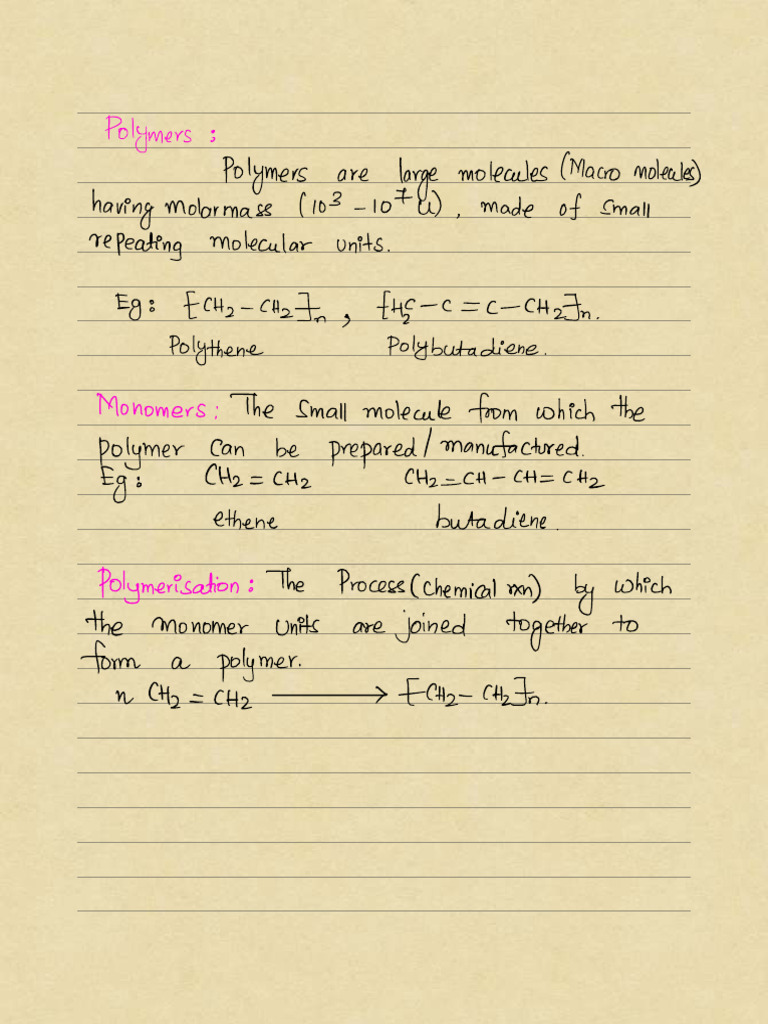 Polymers :
Polymers are large molecules (Macro molecules)
having molormass (10³ – 10⁷ U), made of small
repeating molecular units.
Eg: -[CH₂ – CH₂]-ₙ , -[H₂C – C = C – CH₂]-ₙ.
Polythene Polybutadiene.
Monomers: The small molecule from which the
polymer can be prepared/manufactured.
Eg: CH₂ = CH₂ CH₂ = CH – CH = CH₂
ethene butadiene.
Polymerisation: The Process (Chemical rxn) by which
the monomer units are joined together to
form a polymer.
n CH₂ = CH₂ ⟶ -[CH₂ – CH₂]-ₙ.